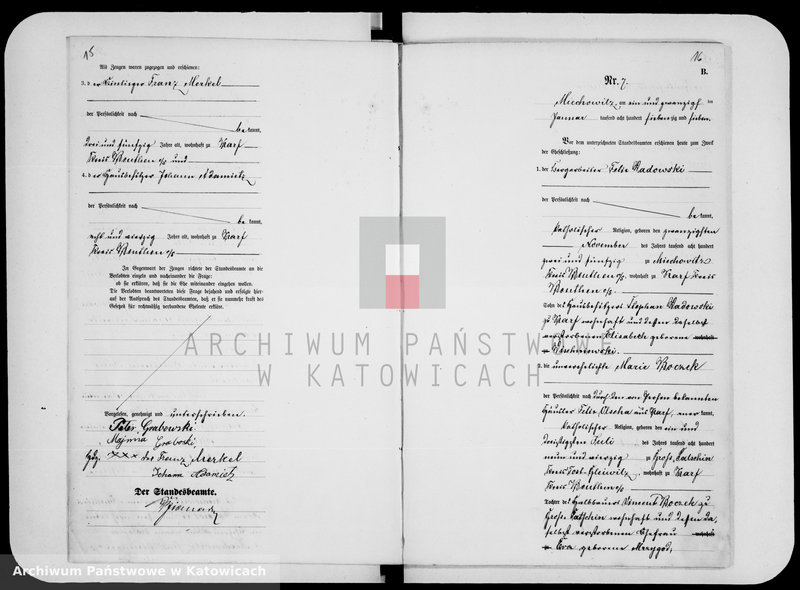 15
Als Zeugen waren zugezogen und erschienen:
3. der Franz Merkel
der Persönlichkeit nach
bekannt,
drei und fünfzig Jahre alt, wohnhaft zu Karf
Kreis Beuthen o/s und
4. der Hausbesitzer Johann Adamietz
der Persönlichkeit nach
bekannt,
acht und vierzig Jahre alt, wohnhaft zu Karf
Kreis Beuthen o/s
In Gegenwart der Zeugen richtete der Standesbeamte an die
Verlobten einzeln und nacheinander die Frage:
ob sie erklären, daß sie die Ehe miteinander eingehen wollen.
Die Verlobten beantworteten diese Frage bejahend und erfolgte hier-
auf der Ausspruch des Standesbeamten, daß er sie nunmehr kraft des
Gesetzes für rechtmäßig verbundene Eheleute erkläre.
Vorgelesen, genehmigt und unterschrieben.
Peter Grabowski
Grabowski
xxx des Franz Merkel
Johann Adamietz
Der Standesbeamte.
16
B.
Nr. 7.
Miechowitz, am ein und zwanzigsten
Januar tausend acht hundert siebenzig und sieben.
Vor dem unterzeichneten Standesbeamten erschienen heute zum Zweck
der Eheschließung:
1. der Bergarbeiter Felix Radowski
der Persönlichkeit nach
bekannt,
katholischer Religion, geboren den zwanzigsten
November des Jahres tausend acht hundert
zwei und fünfzig zu Miechowitz
Kreis Beuthen o/s, wohnhaft zu Karf Kreis
Beuthen o/s
Sohn des Hausbesitzers Stephan Radowski
zu Karf wohnhaft und dessen daselbst
verstorbenen Elisabeth geborene
2. die unverehelichte Marie Boczek
der Persönlichkeit nach durch den von Person bekannten
Häusler Felix aus Karf, anerkannt,
katholischer Religion, geboren den ein und
dreißigsten Juli des Jahres tausend acht hundert
neun und vierzig zu Groß
Kreis Tost-Gleiwitz, wohnhaft zu Karf
Kreis Beuthen o/s
Tochter des Halbbauers Vincent Boczek zu
Groß wohnhaft und dessen da-
selbst verstorbenen Ehefrau
Eva geborene
ARCHIWUM PAŃSTWOWE
W KATOWICACH
Archiwum Państwowe w Katowicach